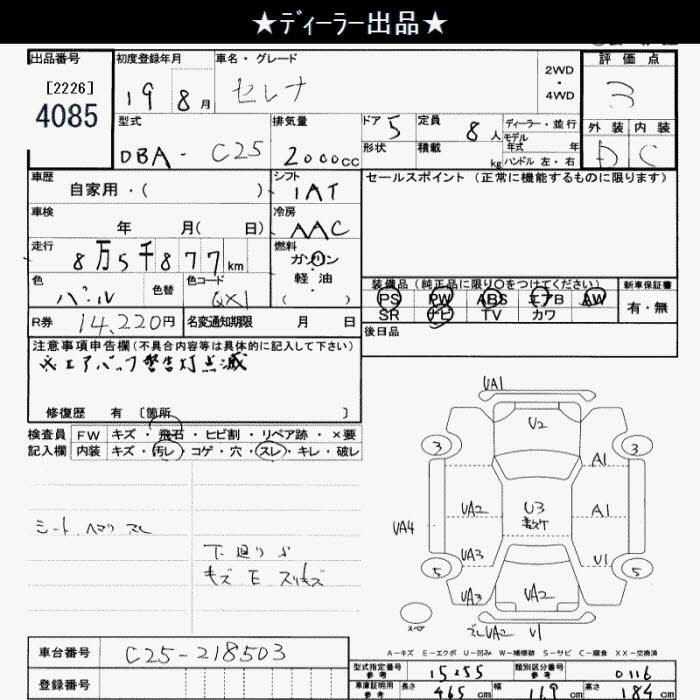 ★ディーラー出品★
出品番号
[2226]
4085
初度登録年月
19 8月
車名・グレード
セレナ
2WD
・
4WD
評価点
3
外装 内装
D C
型式
DBA - C25
排気量
2000cc
ドア 5
形状
定員 8人
積載 kg
ディーラー・並行
モデル
年式 年
ハンドル 左・右
車歴
自家用・( )
シフト
IAT
セールスポイント(正常に機能するものに限ります)
車検
年 月( 日)
冷房
AAC
走行
8万5千877km
燃料
ガソリン
軽油
( )
色
パール
色替
色コード
QX1
装備品(純正品に限り○をつけてください)
PS PW ABS エアB AW
SR ナビ TV カワ
新車保証書
有・無
R券 14,220円
名変通知期限 月 日
後日品
注意事項申告欄(不具合内容等は具体的に記入して下さい)
※エアバッグ警告灯点滅
修復歴 有 [箇所 ]
検査員 FW キズ・飛石・ヒビ割・リペア跡・×要
記入欄 内装 キズ・汚レ・コゲ・穴・スレ・キレ・破レ
シート ヘタリ スレ
下廻り
キズ E スリキズ
UA1
U2
3 3
A1
UA2 U3 A1
UA4
UA3 U1
5 5
UA3 UA2
スペア
ズレUA2 U1
A-キズ E-エクボ U-凹み W-補修跡 S-サビ C-腐食 XX-交換済
車台番号 C25-218503
登録番号
型式指定番号
参考
15255
類別区分番号
参考
0116
車庫証明用
参考
長さ 465cm 幅 169cm 高さ 184cm